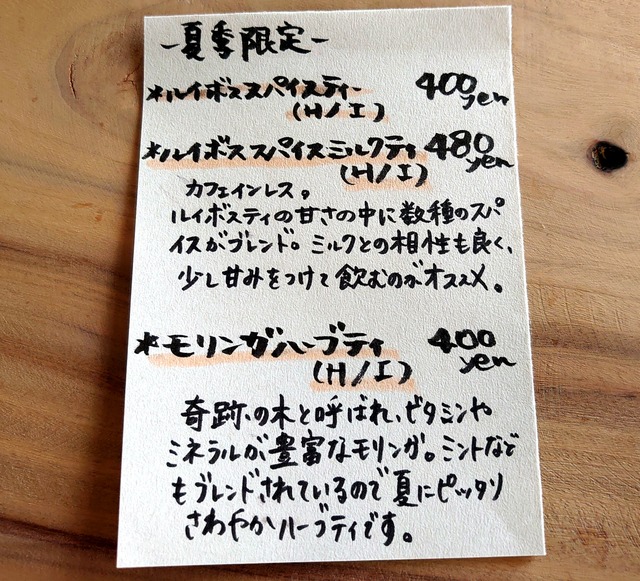 -夏季限定-
*ルイボススパイスティー 400yen
(H/I)
*ルイボススパイスミルクティ 480yen
(H/I)
カフェインレス。
ルイボスティの甘さの中に数種のスパ
イスがブレンド。ミルクとの相性も良く、
少し甘みをつけて飲むのがオススメ。
*モリンガハーブティ 400yen
(H/I)
奇跡の木と呼ばれ、ビタミンや
ミネラルが豊富なモリンガ。ミントなど
もブレンドされているので夏にピッタリ
さわやかハーブティです。